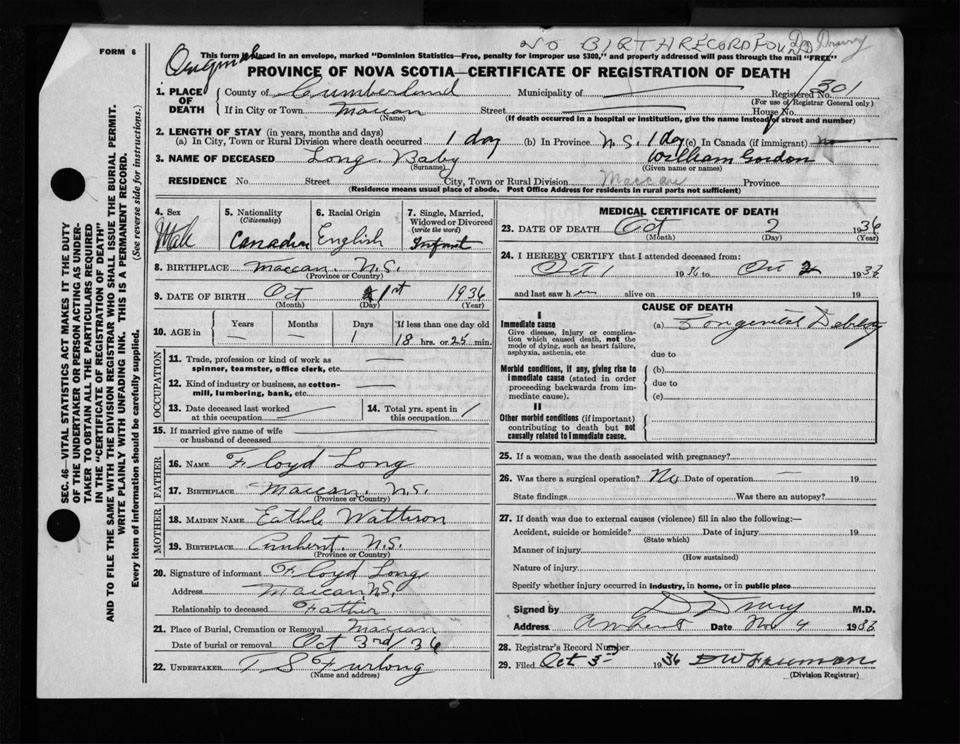 NO BIRTH RECORD FOU Drury
FORM 6
This form if placed in an envelope, marked "Dominion Statistics—Free, penalty for improper use $300," and properly addressed will pass through the mail "FREE"
PROVINCE OF NOVA SCOTIA—CERTIFICATE OF REGISTRATION OF DEATH
1. PLACE OF DEATH
County of Cumberland Municipality of Registered No. 301
(For use of Registrar General only)
If in City or Town Maccan Street House No.
(Name) (If death occurred in a hospital or institution, give the name instead of street and number)
2. LENGTH OF STAY (in years, months and days)
(a) In City, Town or Rural Division where death occurred 1 day (b) In Province N.S. 1 day (c) In Canada (if immigrant)
3. NAME OF DECEASED Long Baby William Gordon
(Surname) (Given name or names)
RESIDENCE No Street City, Town or Rural Division Maccan Province
(Residence means usual place of abode. Post Office Address for residents in rural parts not sufficient)
4. Sex
Male
5. Nationality
(Citizenship)
Canadian
6. Racial Origin
English
7. Single, Married, Widowed or Divorced
(write the word)
Infant
8. BIRTHPLACE Maccan. N.S.
(Province or Country)
9. DATE OF BIRTH Oct 1st 1936
(Month) (Day) (Year)
10. AGE in
Years Months Days If less than one day old
— — 1 18 hrs. or 25 min.
OCCUPATION
11. Trade, profession or kind of work as —
spinner, teamster, office clerk, etc.
12. Kind of industry or business, as cotton- —
mill, lumbering, bank, etc.
13. Date deceased last worked
at this occupation
14. Total yrs. spent in
this occupation
15. If married give name of wife
or husband of deceased
FATHER
16. NAME Floyd Long
17. BIRTHPLACE Maccan. N.S.
(Province or Country)
MOTHER
18. MAIDEN NAME Wattison
19. BIRTHPLACE Amherst. N.S.
(Province or Country)
20. Signature of informant Floyd Long
Address Maccan N.S.
Relationship to deceased Father
21. Place of Burial, Cremation or Removal Maccan
Date of burial or removal Oct 3rd / 36
22. UNDERTAKER T S Furlong
(Name and address)
MEDICAL CERTIFICATE OF DEATH
23. DATE OF DEATH Oct 2 1936
(Month) (Day) (Year)
24. I HEREBY CERTIFY that I attended deceased from:
Oct 1 1936 to Oct 2 193
and last saw h alive on 19
CAUSE OF DEATH
I
Immediate cause
Give disease, injury or complication which caused death, not the mode of dying, such as heart failure, asphyxia, asthenia, etc
(a) Congenital Debility
due to
Morbid conditions, if any, giving rise to immediate cause (stated in order proceeding backwards from immediate cause).
(b)
due to
(c)
II
Other morbid conditions (if important) contributing to death but not causally related to immediate cause.
25. If a woman, was the death associated with pregnancy?
26. Was there a surgical operation? No Date of operation — 19
State findings Was there an autopsy?
27. If death was due to external causes (violence) fill in also the following:—
Accident, suicide or homicide? Date of injury 19
(State which)
Manner of injury
(How sustained)
Nature of injury
Specify whether injury occurred in industry, in home, or in public place
Signed by D Drury M.D.
Address Amherst Date Nov 4 193
28. Registrar's Record Number
29. Filed Oct 3 1936 Freeman
(Division Registrar)
SEC. 46—VITAL STATISTICS ACT MAKES IT THE DUTY
OF THE UNDERTAKER OR PERSON ACTING AS UNDER-
TAKER TO OBTAIN ALL THE PARTICULARS REQUIRED
IN THE "CERTIFICATE OF REGISTRATION OF DEATH"
AND TO FILE THE SAME WITH THE DIVISION REGISTRAR WHO SHALL ISSUE THE BURIAL PERMIT.
WRITE PLAINLY WITH UNFADING INK. THIS IS A PERMANENT RECORD.
Every item of information should be carefully supplied. (See reverse side for instructions.)